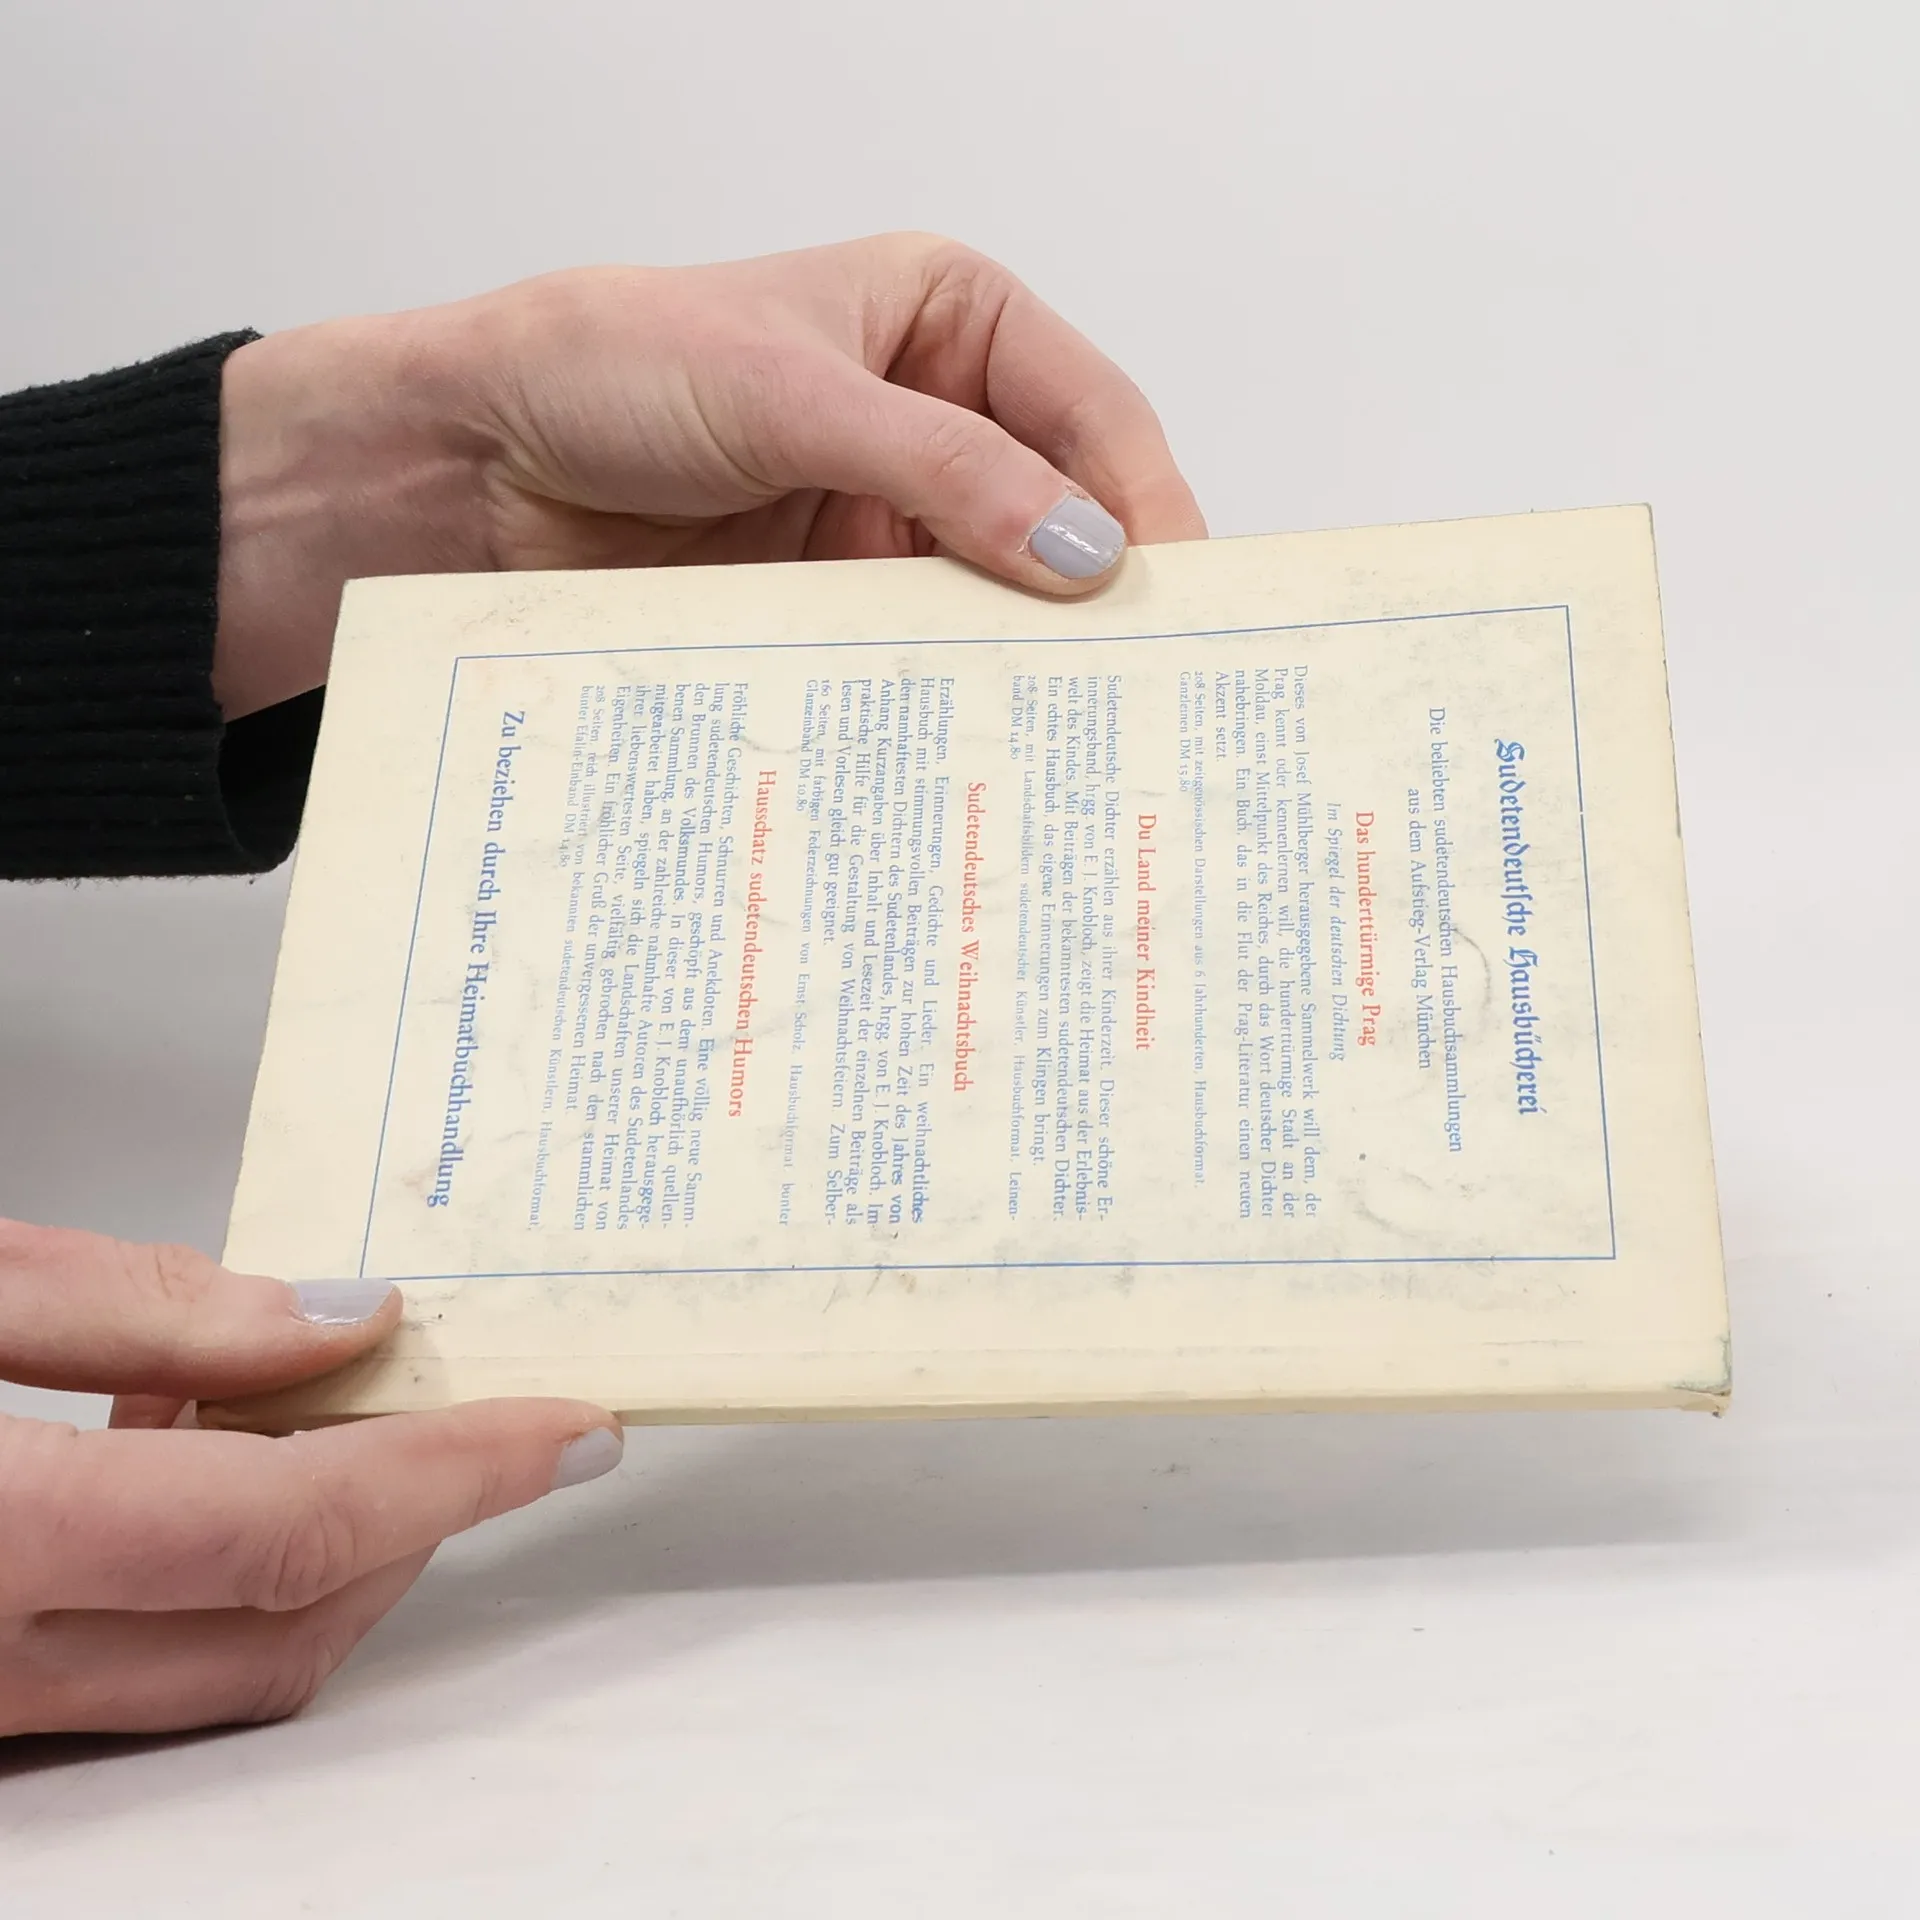 Sudetendeutsche Hausbücherei
Die beliebten sudetendeutschen Hausbuchsammlungen
aus dem Aufstieg-Verlag München
Das hunderttürmige Prag
Im Spiegel der deutschen Dichtung
Dieses von Josef Mühlberger herausgegebene Sammelwerk will dem, der
Prag kennt oder kennenlernen will, die hunderttürmige Stadt an der
Moldau, einst Mittelpunkt des Reiches, durch das Wort deutscher Dichter
nahebringen. Ein Buch, das in die Flut der Prag-Literatur einen neuen
Akzent setzt.
208 Seiten, mit zeitgenössischen Darstellungen aus 6 Jahrhunderten, Hausbuchformat,
Ganzleinen DM 15,80
Du Land meiner Kindheit
Sudetendeutsche Dichter erzählen aus ihrer Kinderzeit. Dieser schöne Er-
innerungsband, hrgg. von E. J. Knobloch, zeigt die Heimat aus der Erlebnis-
welt des Kindes. Mit Beiträgen der bekanntesten sudetendeutschen Dichter.
Ein echtes Hausbuch, das eigene Erinnerungen zum Klingen bringt.
208 Seiten, mit Landschaftsbildern sudetendeutscher Künstler, Hausbuchformat, Leinen-
band DM 14,80
Sudetendeutsches Weihnachtsbuch
Erzählungen, Erinnerungen, Gedichte und Lieder. Ein weihnachtliches
Hausbuch mit stimmungsvollen Beiträgen zur hohen Zeit des Jahres von
den namhaftesten Dichtern des Sudetenlandes, hrgg. von E. J. Knobloch. Im
Anhang Kurzangaben über Inhalt und Lesezeit der einzelnen Beiträge als
praktische Hilfe für die Gestaltung von Weihnachtsfeiern. Zum Selber-
lesen und Vorlesen gleich gut geeignet.
160 Seiten, mit farbigen Federzeichnungen von Ernst Scholz, Hausbuchformat, bunter
Glanzeinband DM 10,80
Hausschatz sudetendeutschen Humors
Fröhliche Geschichten, Schnurren und Anekdoten. Eine völlig neue Samm-
lung sudetendeutschen Humors, geschöpft aus dem unaufhörlich quellen-
den Brunnen des Volksmundes. In dieser von E. J. Knobloch herausgege-
benen Sammlung, an der zahlreiche nahmhafte Autoren des Sudetenlandes
mitgearbeitet haben, spiegeln sich die Landschaften unserer Heimat von
ihrer liebenswertesten Seite, vielfältig gebrochen nach den stammlichen
Eigenheiten. Ein fröhlicher Gruß der unvergessenen Heimat.
208 Seiten, reich illustriert von bekannten sudetendeutschen Künstlern, Hausbuchformat,
bunter Efalin-Einband DM 14,80
Zu beziehen durch Ihre Heimatbuchhandlung